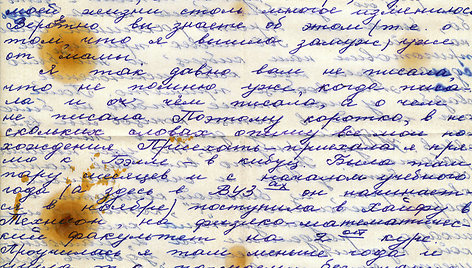 моей жизни столь многое изменилось
Вероятно вы знаете об этом (т.е. о
том что я вышла замуж) уже
от мамы.
Я так давно вам не писала
что не помню уже, когда писа-
ла и о чём писала и о чем
не писала Поэтому коротко, в не-
скольких словах опишу все мои по-
хождения. Приехать – приехала я пря-
мо к Вэле – в кибуц. Была там
пару месяцев и с началом учебного
года (а здесь в ВУЗ ах он начинает-
ся в ноябре) поступила в Хайфу в
Технион на физико-математичес-
кий факультет на 2 ой курс
Проучилась я там меньше года и